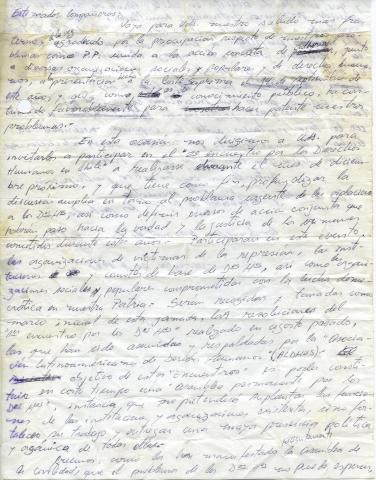 Estimados compañeros:
Vaya para Uds. nuestro saludo más fra-
ternos agradecidos por la preocupación respecto de nuestros pro-
blemas como P.P. unido a la acción concreta de junto
a diversas organizaciones sociales y populares y de derechos huma-
nos, a presentación a la Corte Suprema el de septiembre de
este año, y así como conocimiento público, ha cons-
favorablemente para hacer patente nuestros
problemas.-
En esta ocasión nos dirigimos a Uds. para
invitarlos a participar en el "2º encuentro por los Derechos
Humanos en Chile" a realizarse durante el mes de diciem-
bre próximo, y que tiene como fin, profundizar la
discusión amplia en torno al problema vigente de las violaciones
a los DDHH, así como definir cursos de acción conjunta que
podrían paso hacia la verdad y la justicia de los crímenes
cometidos durante estos años.- Participarán en este evento,
las organizaciones de víctimas de la represión, las insti-
tuciones y comités de base de DDHH, así como organi-
zaciones sociales y populares comprometidos con la lucha demo-
crática en nuestra Patria.- Serán recogidas y tomadas como
marco inicial de esta jornada, las resoluciones del
"1er encuentro por los DDHH" realizado en agosto pasado,
las que han sido asumidas y respaldadas por la "Asocia-
ción Latinoamericana de Derechos Humanos" (ALDHU).- El
objetivo de estos "Encuentros" es poder consti-
tuir en corto tiempo una "Asamblea permanente por los
DDHH", instancia que no pretende suplantar las funcio-
nes de las instituciones y organizaciones existentes, sino for-
talecer su trabajo y entregar una mayor presencia política
y orgánica de todos ellos.-
Creemos como lo han manifestado la asamblea de
la civilidad, que el problema de los DDHH no puede esperar,